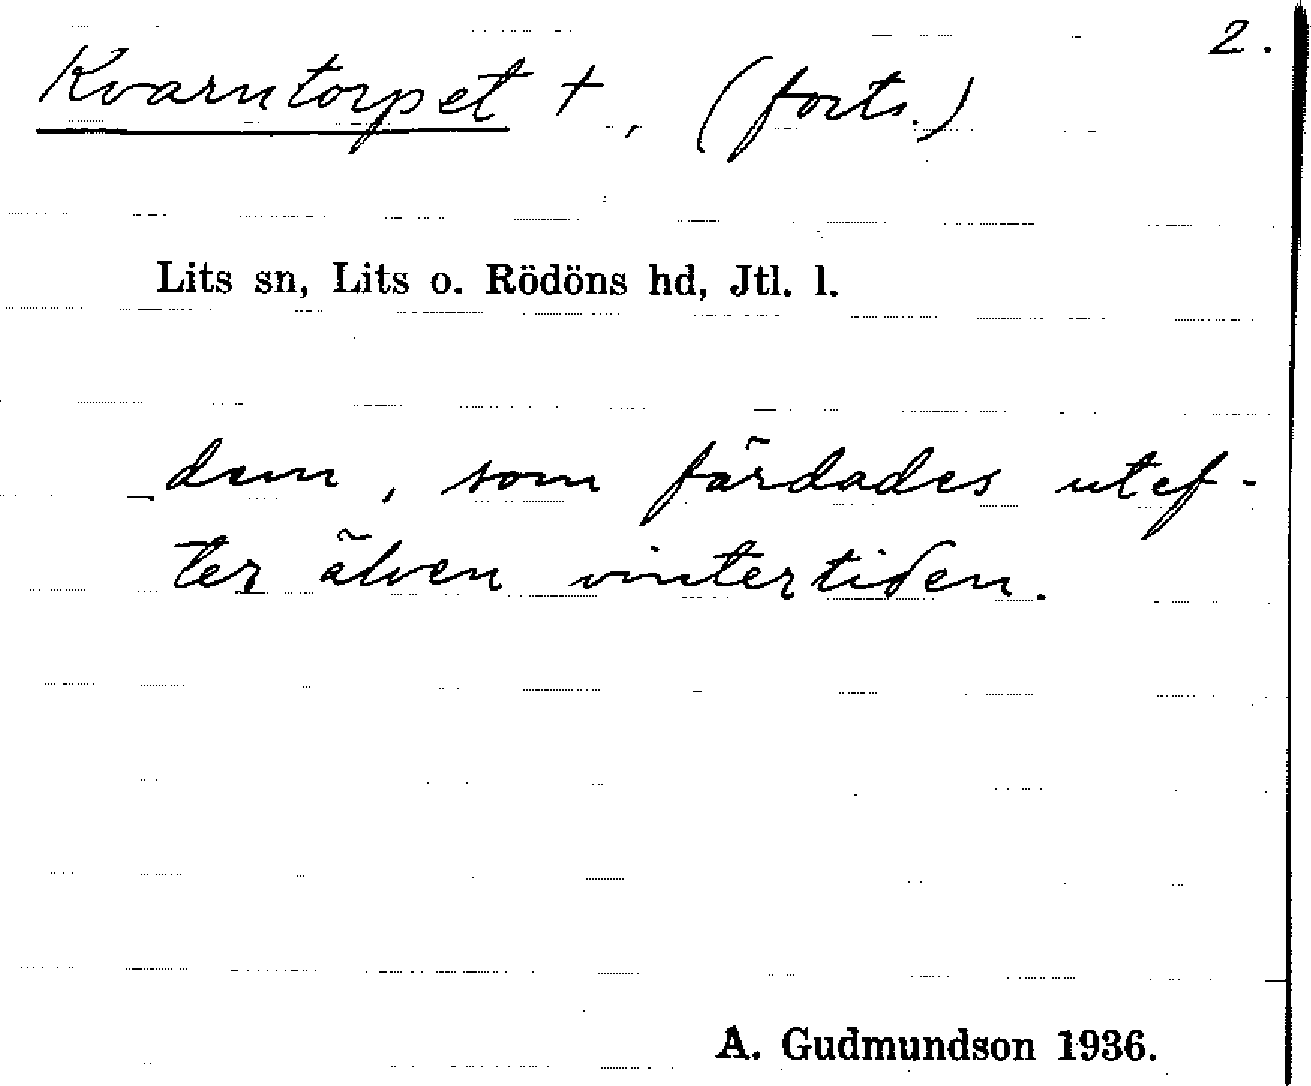 2.
Kvarntorpet +, (forts.)
Lits sn, Lits o. Rödöns hd, Jtl. l.
dem, som färdades utef-
ter älven vintertiden.
A. Gudmundson 1936.